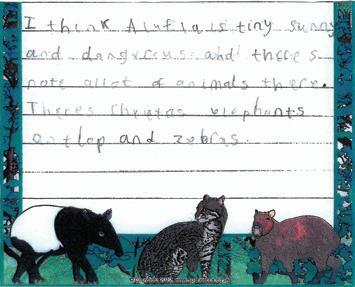 I think Aiufla is tiny sunny
and dangvrous and theres
note allot of animals there.
Theres cheetas elephants
antlop and zebras.